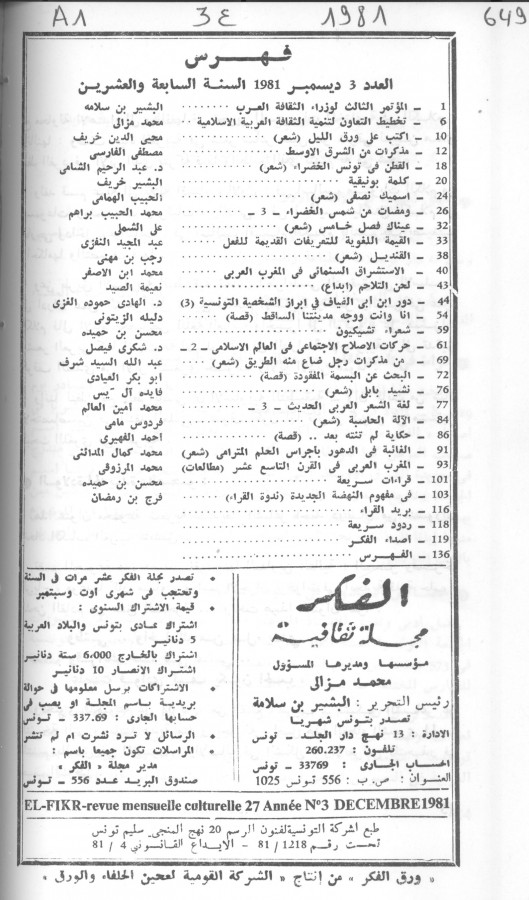 A1 3ع 1981 649
فهرس
العدد 3 ديسمبر 1981 السنة السابعة والعشرين
1 ـ المؤتمر الثالث لوزراء الثقافة العرب ........ البشير بن سلامه
6 ـ تخطيط التعاون لتنمية الثقافة العربية الاسلامية .. محمد مزالى
10 ـ اكتب على ورق الليل (شعر) ........ محيى الدين خريف
12 ـ مذكرات من الشرق الاوسط ........ مصطفى الفارسى
18 ـ القطن فى تونس الخضراء (شعر) ........ د. عبد الرحيم الشامى
20 ـ كلمة بونيقية ........ البشير خريف
24 ـ اسميك نصفى (شعر) ........ الحبيب الهمامى
26 ـ ومضات من شمس الخضراء ـ 3 ـ ........ محمد الحبيب براهم
32 ـ عيناك فصل خامس (شعر) ........ على الشملى
33 ـ القيمة اللغوية للتعريفات القديمة للفعل ........ عبد المجيد النفزى
38 ـ القنديل (شعر) ........ رجب بن مهنى
40 ـ الاستشراق السنمائى فى المغرب العربى ........ محمد ابن الاصفر
43 ـ لحن التلاحم (ابداع) ........ نعيمة الصيد
44 ـ دور ابن أبى الضياف فى ابراز الشخصية التونسية (3) د. الهادى حموده الغزى
54 ـ انا وانت ووجه مدينتنا الساقط (قصة) ........ دليله الزيتونى
59 ـ شعراء تشيكيون ........ محسن بن حميده
61 ـ حركات الاصلاح الاجتماعى فى العالم الاسلامى ـ 2 ـ د. شكرى فيصل
69 ـ من مذكرات رجل ضاع منه الطريق (شعر) ........ عبد الله السيد شرف
72 ـ البحث عن البسمة المفقودة (قصة) ........ ابو بكر العيادى
76 ـ نشيد بابلى (شعر) ........ فايده آل ياس
77 ـ لغة الشعر العربى الحديث ـ 3 ـ ........ محمد أمين العالم
84 ـ الآلة الحاسبة (شعر) ........ فردوس مامى
86 ـ حكاية لم تنته بعد .. (قصة) ........ احمد القهيرى
91 ـ الغائبة فى الدهور بأجراس الحلم المترامى (شعر) محمد كمال المدائنى
93 ـ المغرب العربى فى القرن التاسع عشر (مطالعات) محمد المرزوقى
101 ـ قراءات سريعة ........ محسن بن حميده
103 ـ فى مفهوم النهضة الجديدة (ندوة القراء) ........ فرج بن رمضان
116 ـ بريد القراء ........
118 ـ ردود سريعة ........
119 ـ أصداء الفكر ........
136 ـ الفهرس ........
الفكر
مجلة ثقافية
مؤسسها ومديرها المسؤول
محمد مزالى
رئيس التحرير : البشير بن سلامة
تصدر بتونس شهريا
الادارة : 13 نهج دار الجلد ـ تونس
تلفون : 260.237
الحساب الجارى : 33769 ـ تونس
العنوان : ص.ب : 556 تونس 1025
• تصدر مجلة الفكر عشر مرات فى السنة
وتحتجب فى شهرى اوت وسبتمبر
• قيمة الاشتراك السنوى :
اشتراك عادى بتونس والبلاد العربية
5 دنانير
اشتراك بالخارج 6,000 ستة دنانير
اشتراك الانصار 10 دنانير
• الاشتراكات يرسل معلومها فى حوالة
بريدية باسم المجلة او يصب فى
حسابها الجارى : 337.69 ـ تونس
• الرسائل لا ترد نشرت ام لم تنشر
• المراسلات تكون جميعا باسم :
مدير مجلة « الفكر »
صندوق البريد عدد 556 ـ تونس
EL-FIKR-revue mensuelle culturelle 27 Année N°3 DECEMBRE 1981
طبع الشركة التونسية لفنون الرسم 20 نهج المنجى سليم تونس
تحت رقم 1218 / 81 ـ الايداع القانونى 4 / 81
« ورق الفكر » من إنتاج « الشركة القومية لعجين الحلفاء والورق »